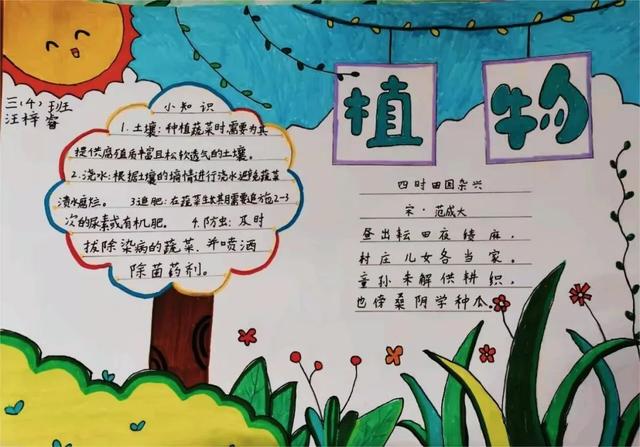 三(4)班
汪梓睿
植物
小知识
1.土壤:种植蔬菜时需要为其
提供腐殖质丰富且松软透气的土壤。
2.浇水:根据土壤的墒情进行浇水避免蔬菜
渍水腐烂。 3追肥:在蔬菜生长其间需要追施2-3
次的尿素或有机肥。 4.防虫:及时
拔除染病的蔬菜,并喷洒
除菌药剂。
四时田园杂兴
宋·范成大
昼出耘田夜绩麻,
村庄儿女各当家。
童孙未解供耕织,
也傍桑阴学种瓜。